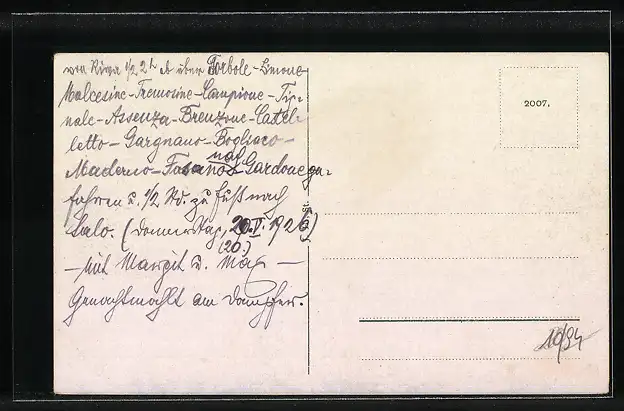 von Riva 1/2 2h ab über Torbole-Limone
Malcesine-Tremosine-Campione-Tig-
nale-Assenza-Brenzone-Castel-
letto-Gargnano-Bogliaco-
Maderno-Fasano nach Gardone ge-
fahren u. 1/2 Std. zu Fuß nach
Salo. (Donnerstag, 20.V.1926)
(20.)
- Mit Margit u. Max -
Genachtmahlt am Dampfer.
2007.
10/94